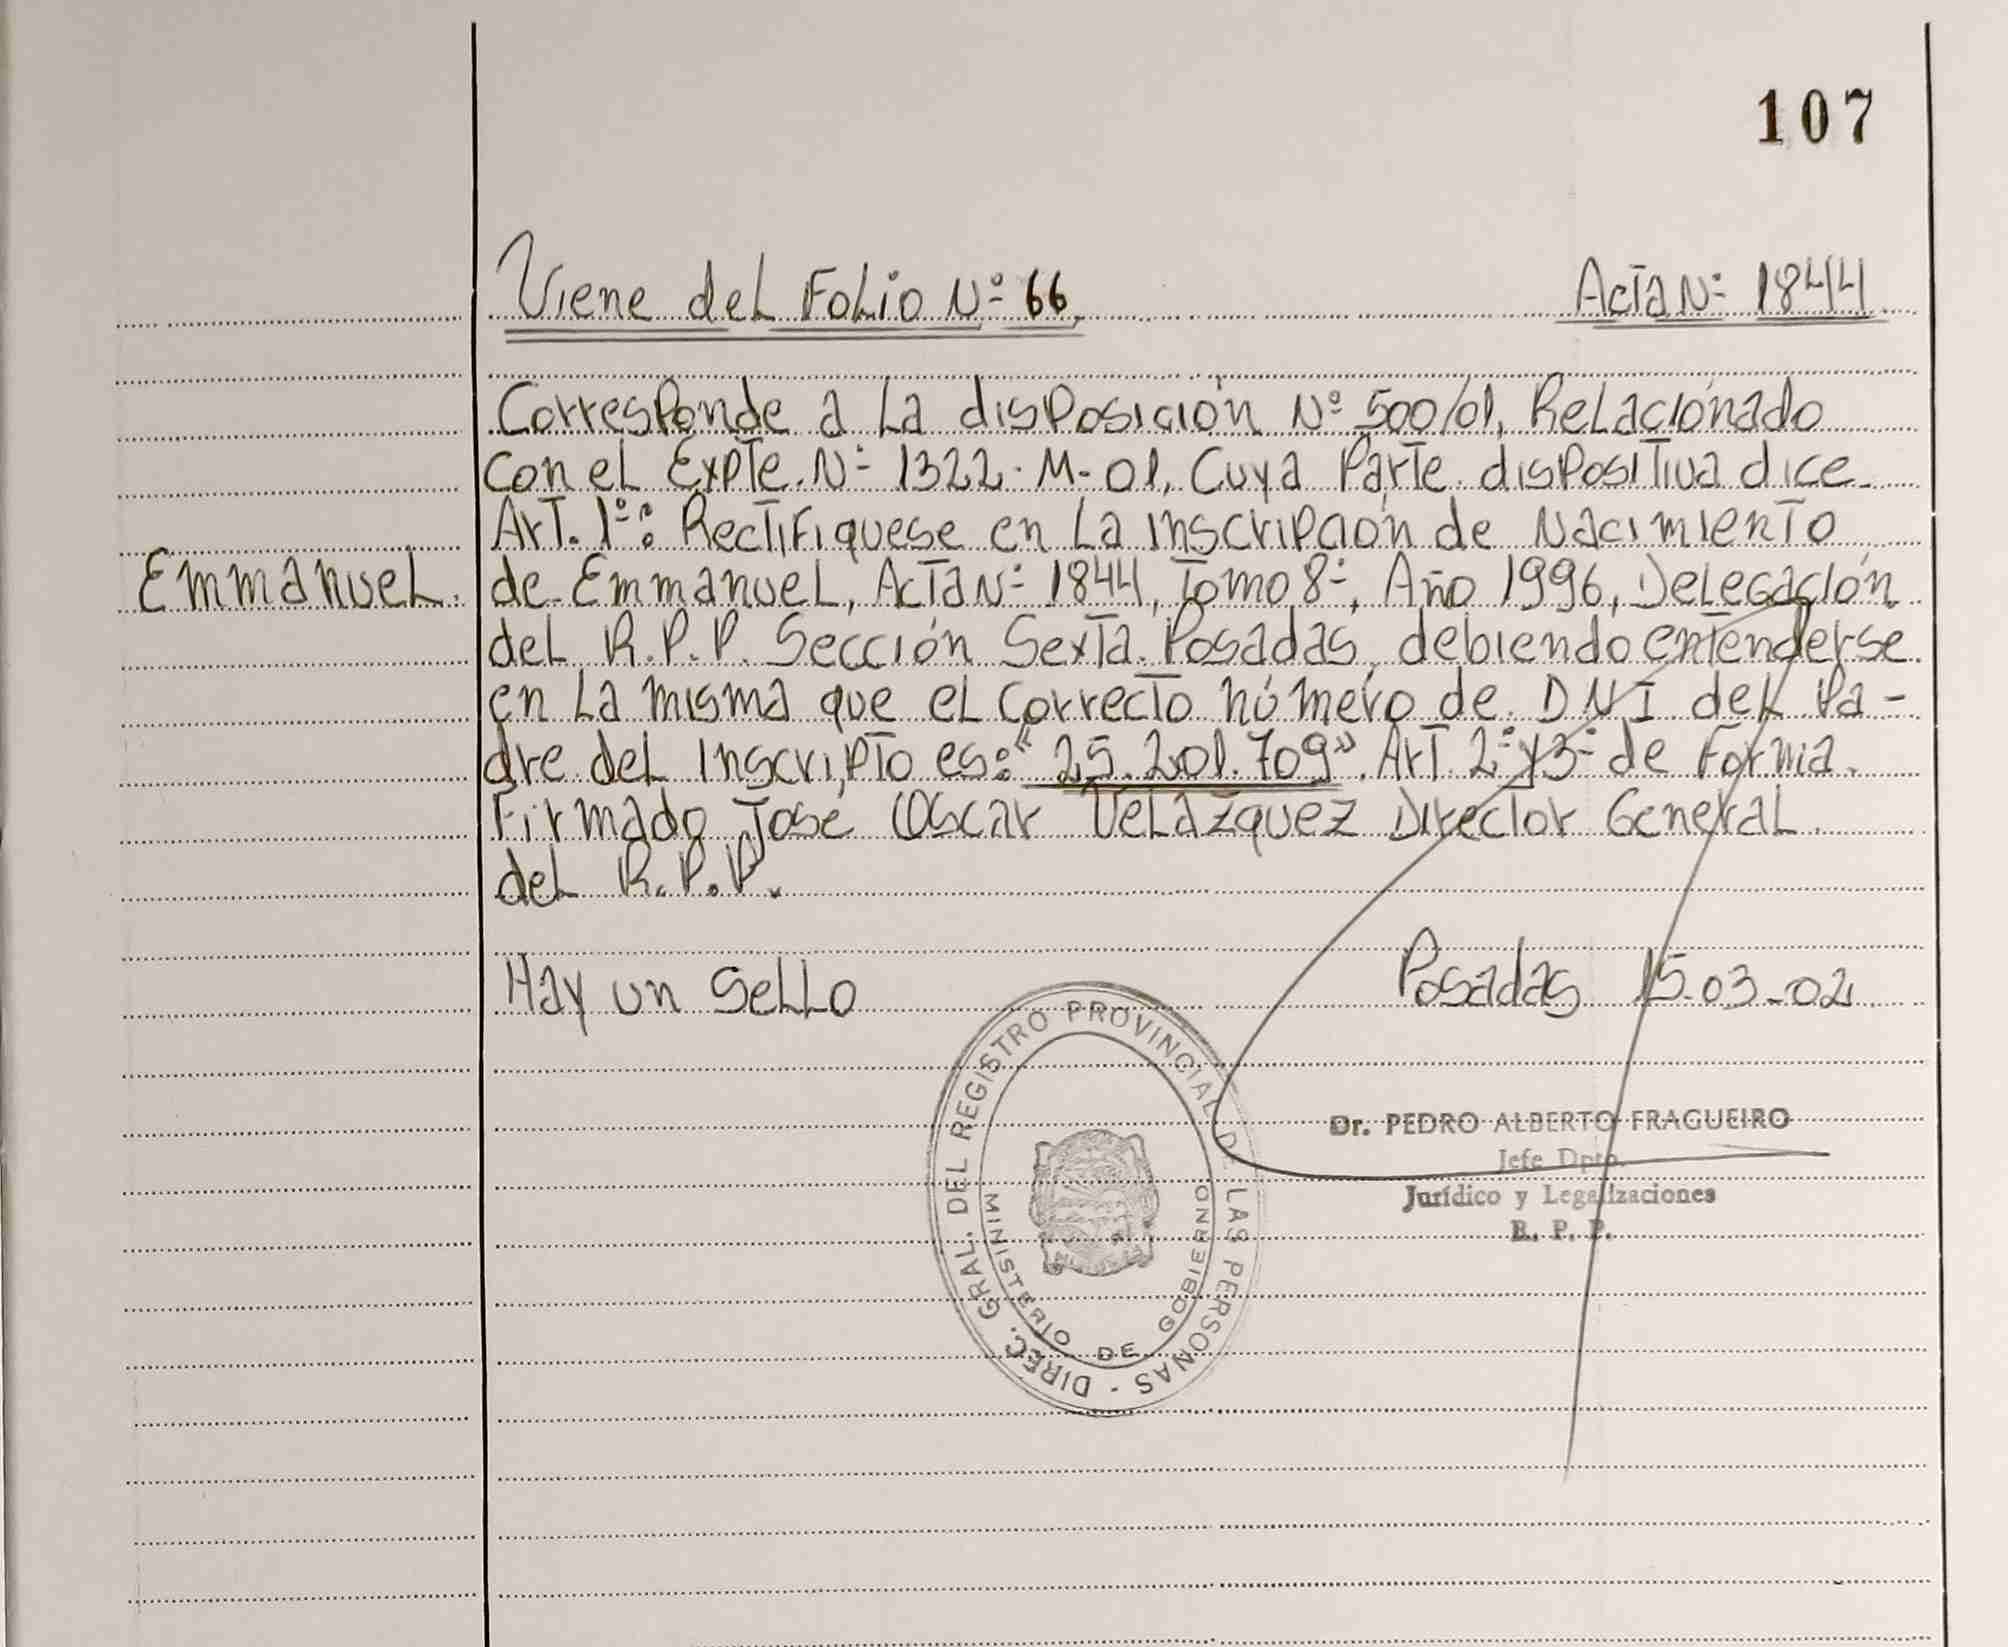 107
Viene del Folio Nº 66. Acta Nº 1844
Corresponde a la disposición Nº 500/01, Relacionado
con el Expte. Nº 1322-M-01, Cuya Parte dispositiva dice.
Art. 1º: Rectifiquese en la inscripción de Nacimiento
Emmanuel. de Emmanuel, Acta Nº 1844, Tomo 8º, Año 1996, Delegación
del R.P.P. Sección Sexta Posadas, debiendo entenderse
en la misma que el correcto número de DNI del Pa-
dre del inscripto es: "25.201.709". Art. 2º y 3º de Forma.
Firmado José Oscar Velázquez Director General
del R.P.P.
Hay un Sello Posadas 15-03-02
DIREC. GRAL. DEL REGISTRO PROVINCIAL DE LAS PERSONAS -
MINISTERIO DE GOBIERNO
Dr. PEDRO ALBERTO FRAGUEIRO
Jefe Dpto.
Jurídico y Legalizaciones
R. P. P.